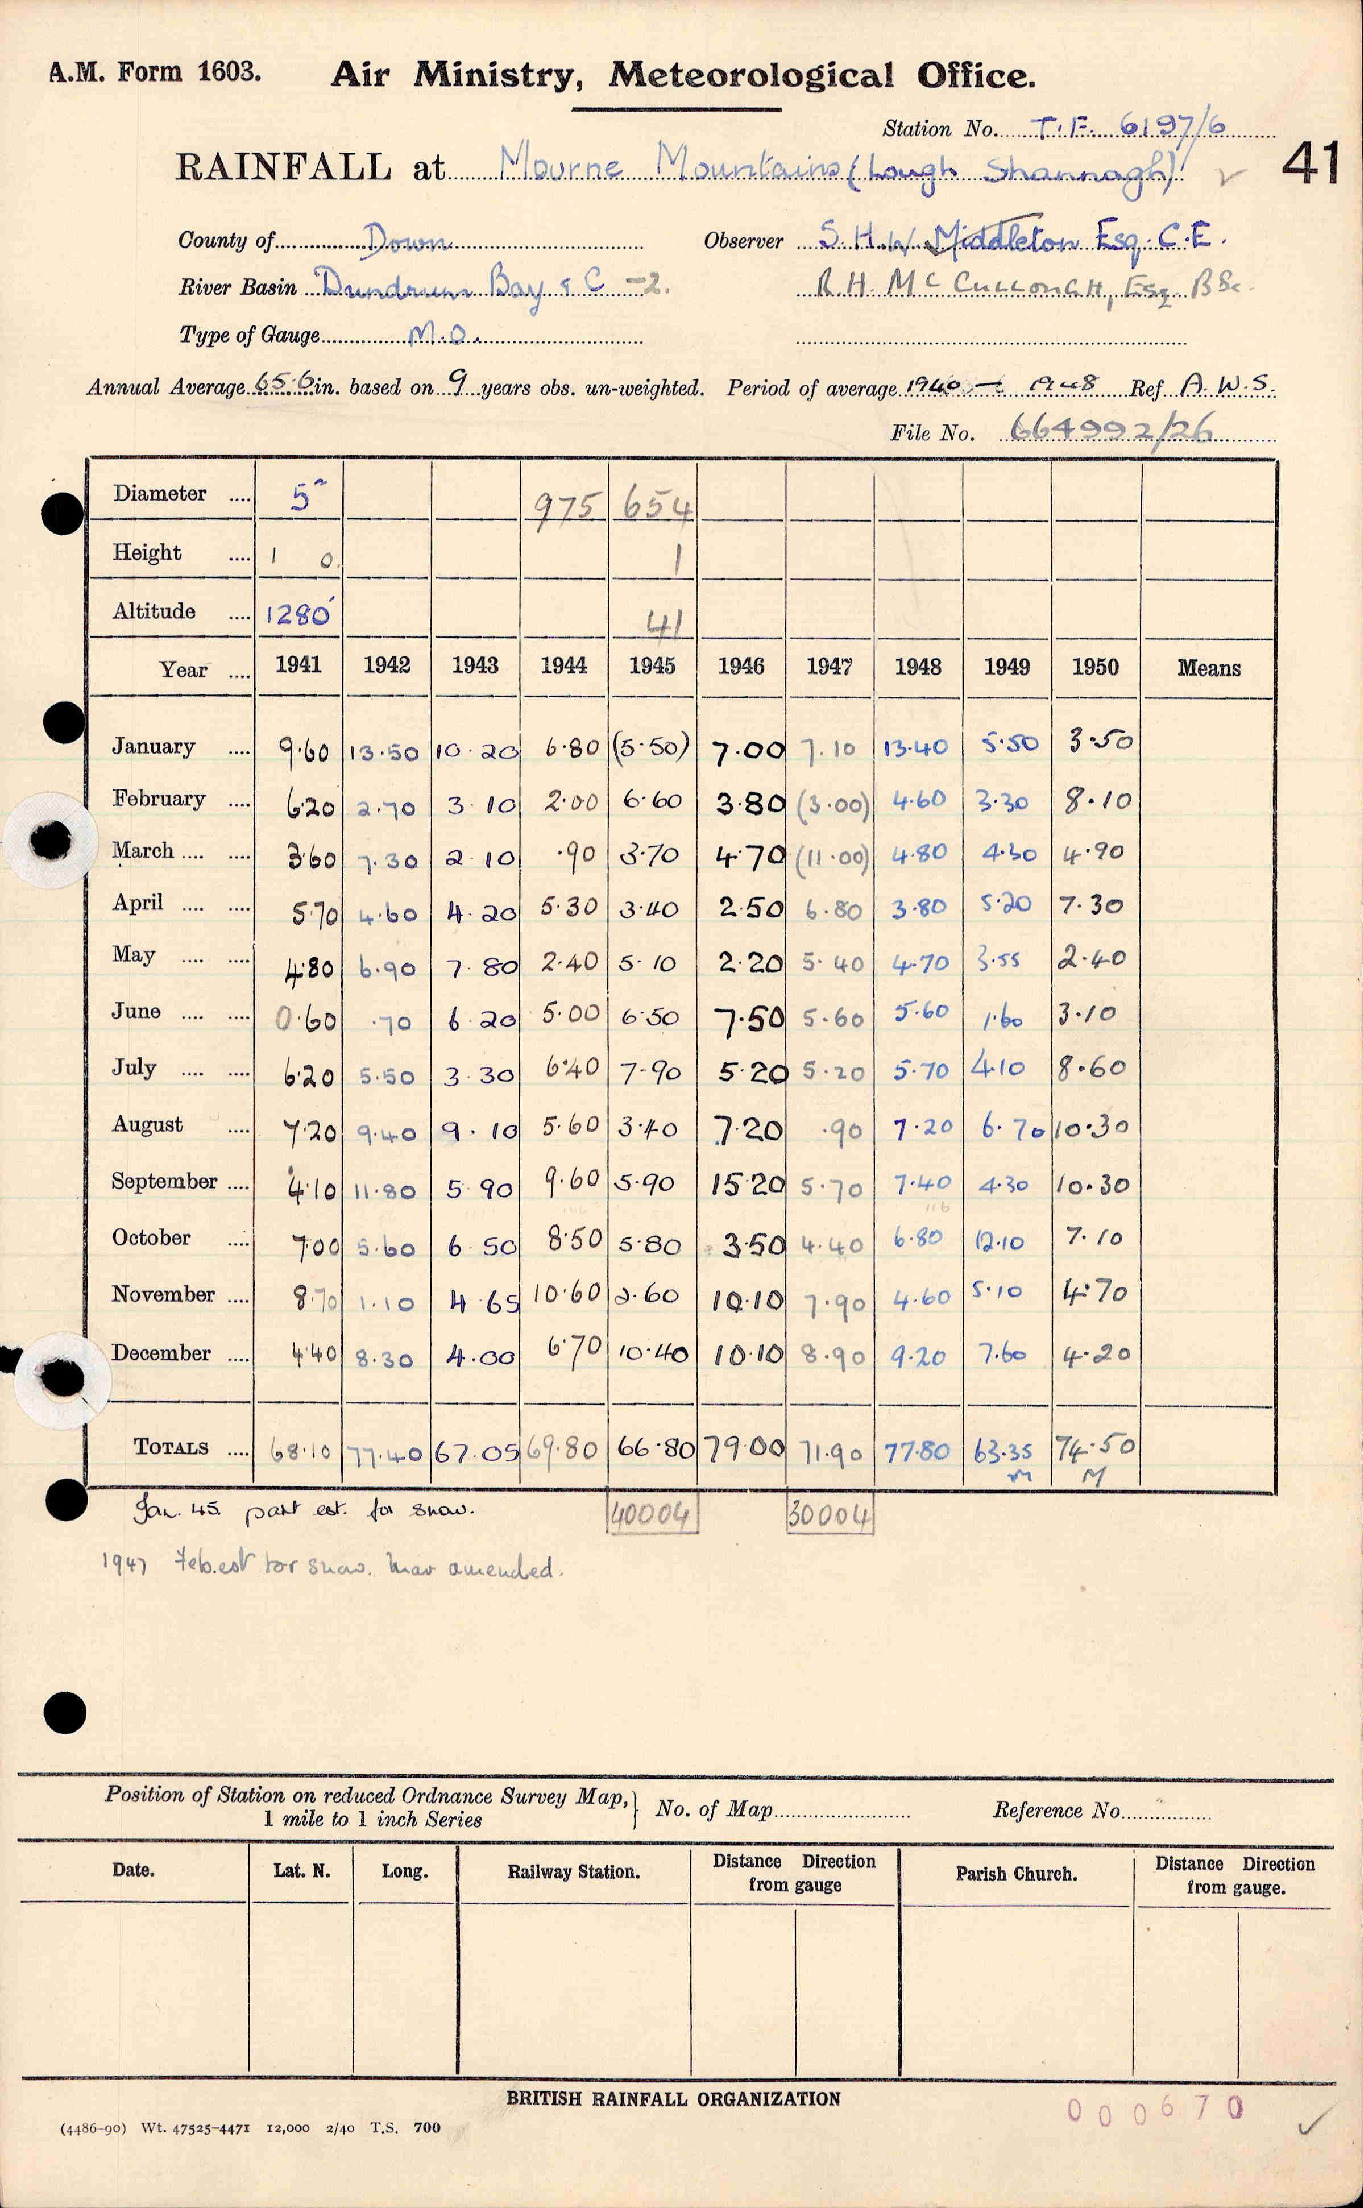 A.M. Form 1603. Air Ministry, Meteorological Office.
Station No. T.F. 6197/6
RAINFALL at Mourne Mountains (Lough Shannagh) 41
County of Down Observer S.H.W Middleton Esq. C.E.
River Basin Dundrum Bay & C -2. R H. McCullough, Esq BSc.
Type of Gauge M.O.
Annual Average 65.6 in. based on 9 years obs. un-weighted. Period of average 1940 - 1948 Ref A.W.S.
File No. 664992/26
Diameter .... 5" 975 654
Height .... 1 0 1
Altitude .... 1280' 41
Year .... 1941 1942 1943 1944 1945 1946 1947 1948 1949 1950 Means
January .... 9.60 13.50 10.20 6.80 (5.50) 7.00 7.10 13.40 5.50 3.50
February .... 6.20 2.70 3.10 2.00 6.60 3.80 (3.00) 4.60 3.30 8.10
March .... .... 3.60 7.30 2.10 .90 3.70 4.70 (11.00) 4.80 4.30 4.90
April .... .... 5.70 4.60 4.20 5.30 3.40 2.50 6.80 3.80 5.20 7.30
May .... .... 4.80 6.90 7.80 2.40 5.10 2.20 5.40 4.70 3.55 2.40
June .... .... 0.60 .70 6.20 5.00 6.50 7.50 5.60 5.60 1.60 3.10
July .... .... 6.20 5.50 3.30 6.40 7.90 5.20 5.20 5.70 4.10 8.60
August .... 7.20 9.40 9.10 5.60 3.40 7.20 .90 7.20 6.70 10.30
September .... 4.10 11.80 5.90 9.60 5.90 15.20 5.70 7.40 4.30 10.30
October .... 7.00 5.60 6.50 8.50 5.80 3.50 4.40 6.80 12.10 7.10
November .... 8.70 1.10 4.65 10.60 2.60 10.10 7.90 4.60 5.10 4.70
December .... 4.40 8.30 4.00 6.70 10.40 10.10 8.90 9.20 7.60 4.20
TOTALS .... 68.10 77.40 67.05 69.80 66.80 79.00 71.90 77.80 63.35 74.50
M M
Jan. 45. part est. for snow. 40004 30004
1947 Feb. est for snow. Mar amended.
Position of Station on reduced Ordnance Survey Map, 1 mile to 1 inch Series } No. of Map Reference No.
Date. Lat. N. Long. Railway Station. Distance Direction from gauge Parish Church. Distance Direction from gauge.
BRITISH RAINFALL ORGANIZATION
000670
(4486-90) Wt. 47525-4471 12,000 2/40 T.S. 700